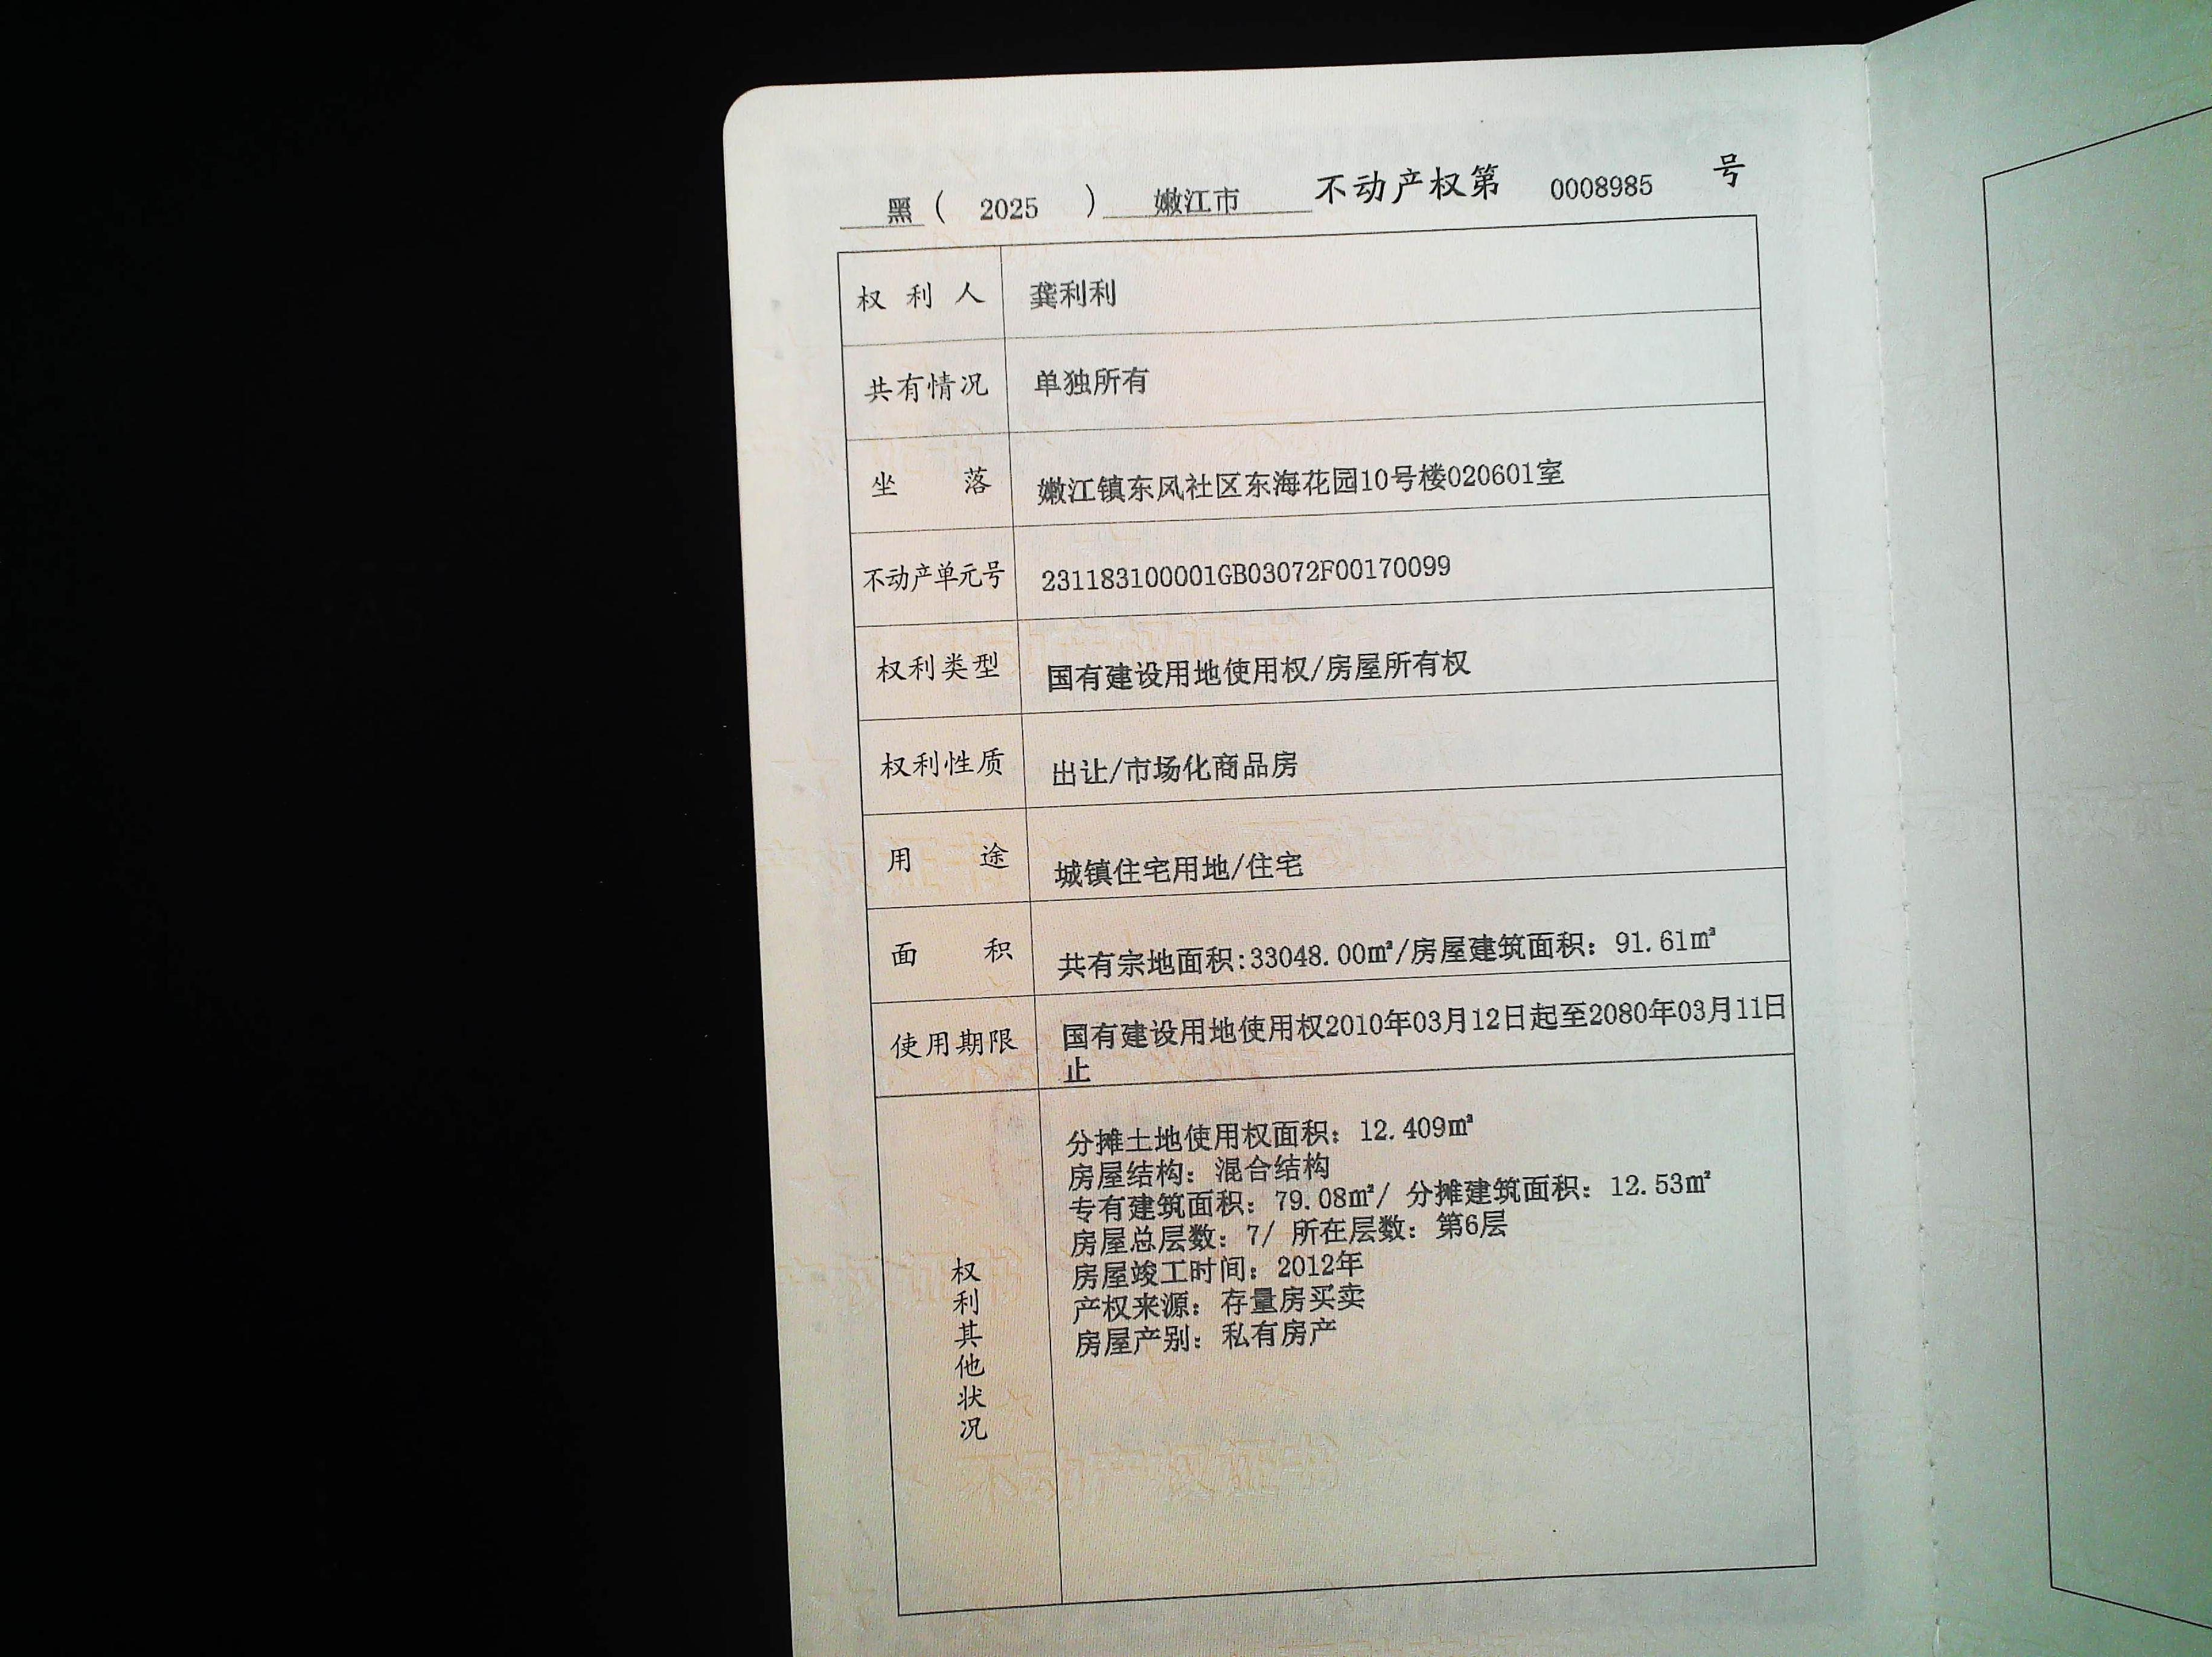 黑（ 2025 ） 嫩江市 不动产权第 0008985 号
权利人 龚利利
共有情况 单独所有
坐落 嫩江镇东风社区东海花园10号楼020601室
不动产单元号 231183100001GB03072F00170099
权利类型 国有建设用地使用权/房屋所有权
权利性质 出让/市场化商品房
用途 城镇住宅用地/住宅
面积 共有宗地面积:33048.00㎡/房屋建筑面积：91.61㎡
使用期限 国有建设用地使用权2010年03月12日起至2080年03月11日
止
权利其他状况
分摊土地使用权面积：12.409㎡
房屋结构：混合结构
专有建筑面积：79.08㎡/ 分摊建筑面积：12.53㎡
房屋总层数：7/ 所在层数：第6层
房屋竣工时间：2012年
产权来源：存量房买卖
房屋产别：私有房产